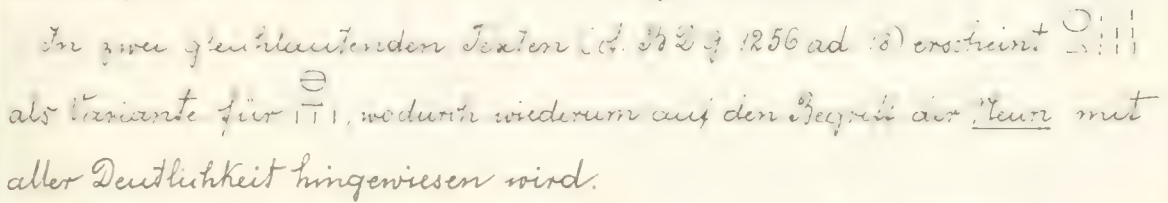 In zwei gleichlautenden Texten (cf. BD g 1256 ad 18) erscheint
als Variante für, wodurch wiederum auf den Begriff der Neun mit
aller Deutlichkeit hingewiesen wird.